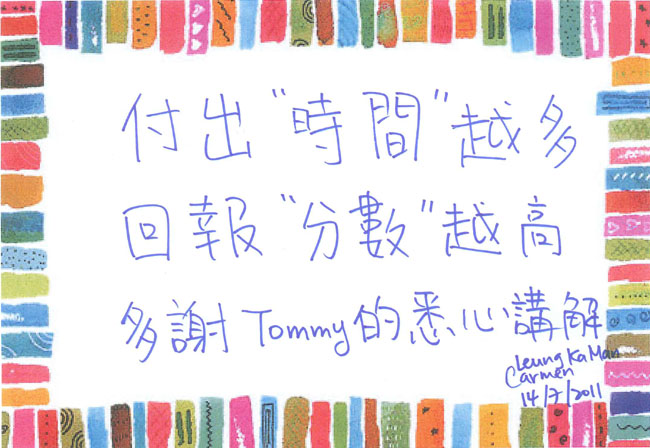 付出"時間"越多
回報"分數"越高
多謝 Tommy的悉心講解
Leung Ka Man
Carmen
14/7/2011